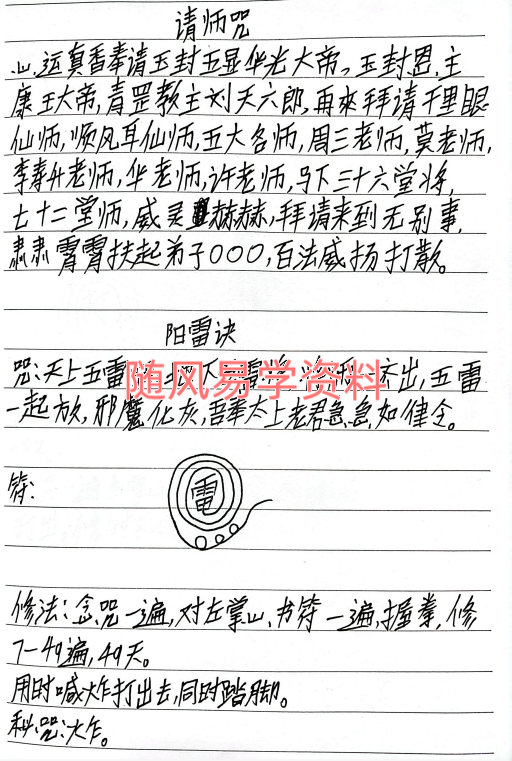 请师咒
心运真香奉请玉封五显华光大帝、玉封恩主
康王大帝,青罡教主刘天六郎,再來拜请千里眼
仙师,顺风耳仙师,五大名师,周三老师,莫老师,
李春升老师,华老师,许老师,马下三十六堂将,
七十二堂师,威灵显赫赫,拜请来到无别事,
肃肃霄霄扶起弟子〇〇〇,百法威扬打散。
阳雷诀
咒:天上五雷 地下 雷 齐出,五雷
随风易学资料
一起放,邪魔化灰,吾奉太上老君急急如律令。
符:
電
修法:念咒一遍,对左掌心书符一遍,握拳,修
7-49遍,49天。
用时喊炸打出去,同时踏脚。
秘咒:大乍。